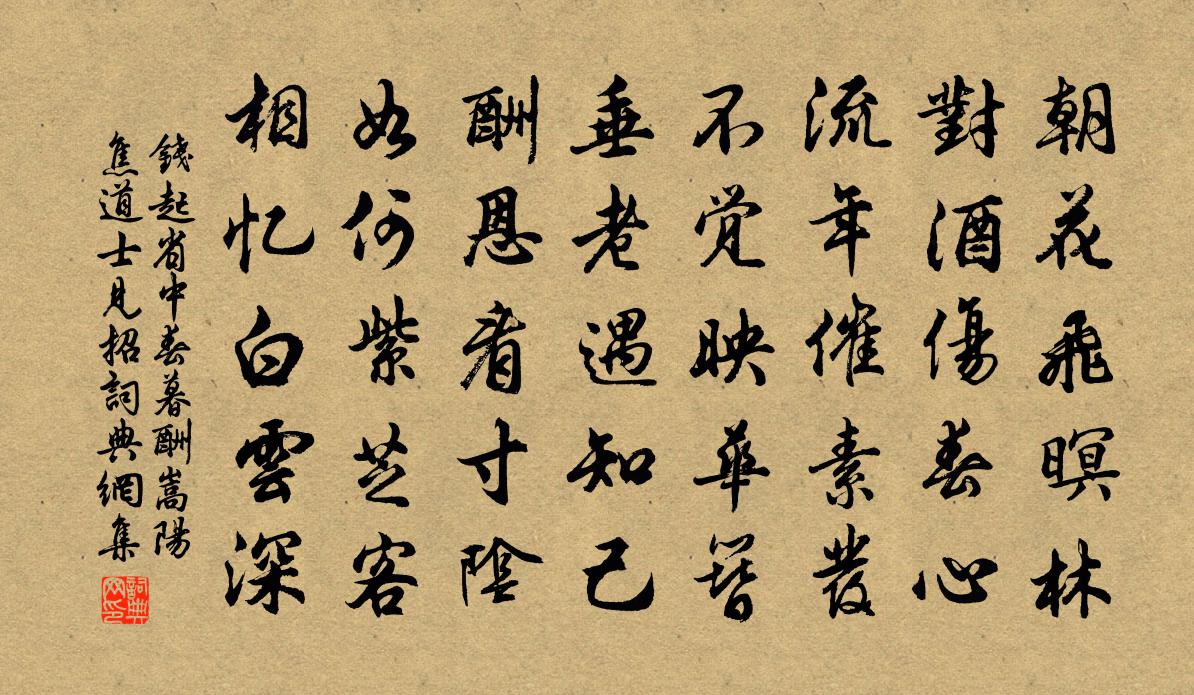 朝花飛暝林
對酒傷春心
流年催素發
不覺映華簪
垂老遇知己
酬恩看寸陰
如何紫芝客
相忆白雲深
錢起省中春暮酬嵩陽
焦道士見招詞典網集
詞典網印